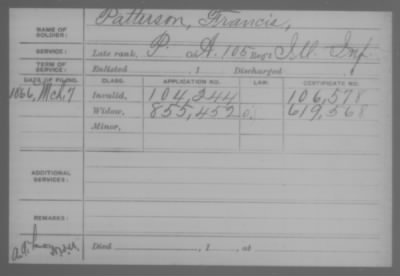 NAME OF SOLDIER: Patterson, Francis,
SERVICE: Late rank, P. Co. A. 105 Reg't Ill. Inf.
TERM OF SERVICE: Enlisted , 1 Discharged
DATE OF FILING. CLASS. APPLICATION NO. LAW. CERTIFICATE NO.
1866, Mch, 7 Invalid, 104,344 106,578
Widow, 855,452 619,568
Minor,
ADDITIONAL SERVICES:
REMARKS:
Died , 1 , at